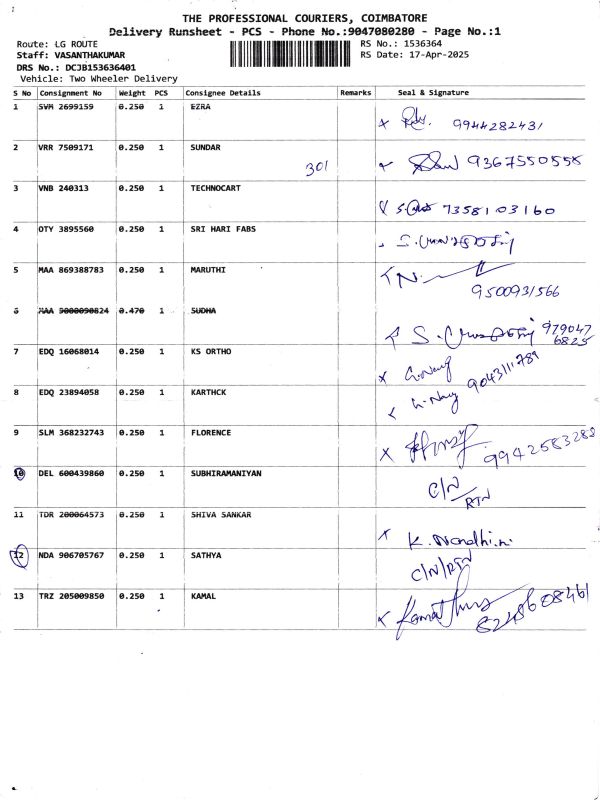 THE PROFESSIONAL COURIERS, COIMBATORE
Delivery Runsheet - PCS - Phone No.:9047080280 - Page No.:1
Route: LG ROUTE RS No.: 1536364
Staff: VASANTHAKUMAR RS Date: 17-Apr-2025
DRS No.: DCJB153636401
Vehicle: Two Wheeler Delivery
S No Consignment No Weight PCS Consignee Details Remarks Seal & Signature
1 SVM 2699159 0.250 1 EZRA
9944282431
2 VRR 7509171 0.250 1 SUNDAR
301 9367550555
3 VNB 240313 0.250 1 TECHNOCART
7358103160
4 OTY 3895560 0.250 1 SRI HARI FABS
5 MAA 869388783 0.250 1 MARUTHI
9500931566
6 MAA 9000090824 0.470 1 SUDHA
979047
6825
7 EDQ 16068014 0.250 1 KS ORTHO
9043111789
8 EDQ 23894058 0.250 1 KARTHCK
9 SLM 368232743 0.250 1 FLORENCE
9942583282
10 DEL 600439860 0.250 1 SUBHIRAMANIYAN
C/N/RTN
11 TDR 200064573 0.250 1 SHIVA SANKAR
K. Nandhini
12 NDA 906705767 0.250 1 SATHYA
C/N/RTN
13 TRZ 205009850 0.250 1 KAMAL
8248608461